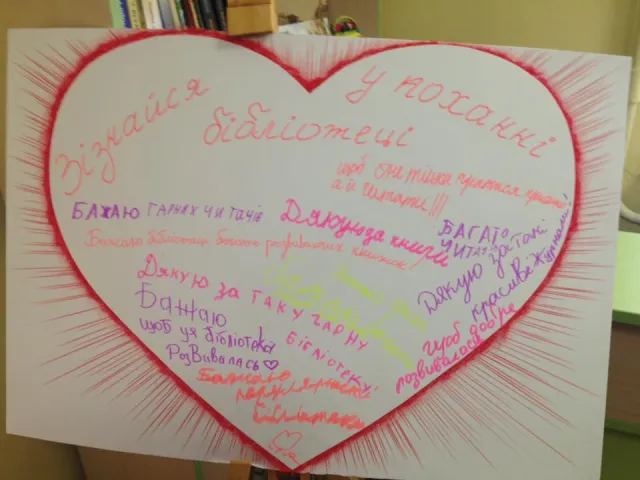 Зізнайся
у коханні
бібліотеці
а й читати!!!
БАЖАЮ ГАРНИХ ЧИТАЧІВ
Дякую за книги
БАГАТО
ЧИТАЧ
Бажаю бібліотеці багато розвиваючих книжок!
Дякую за такі
красиві журнали!
Дякую за таку гарну
бібліотеку!
Бажаю
щоб ця бібліотека
РозВивалась♡
щоб
розвивалася добре
Бажаю
бібліотеки